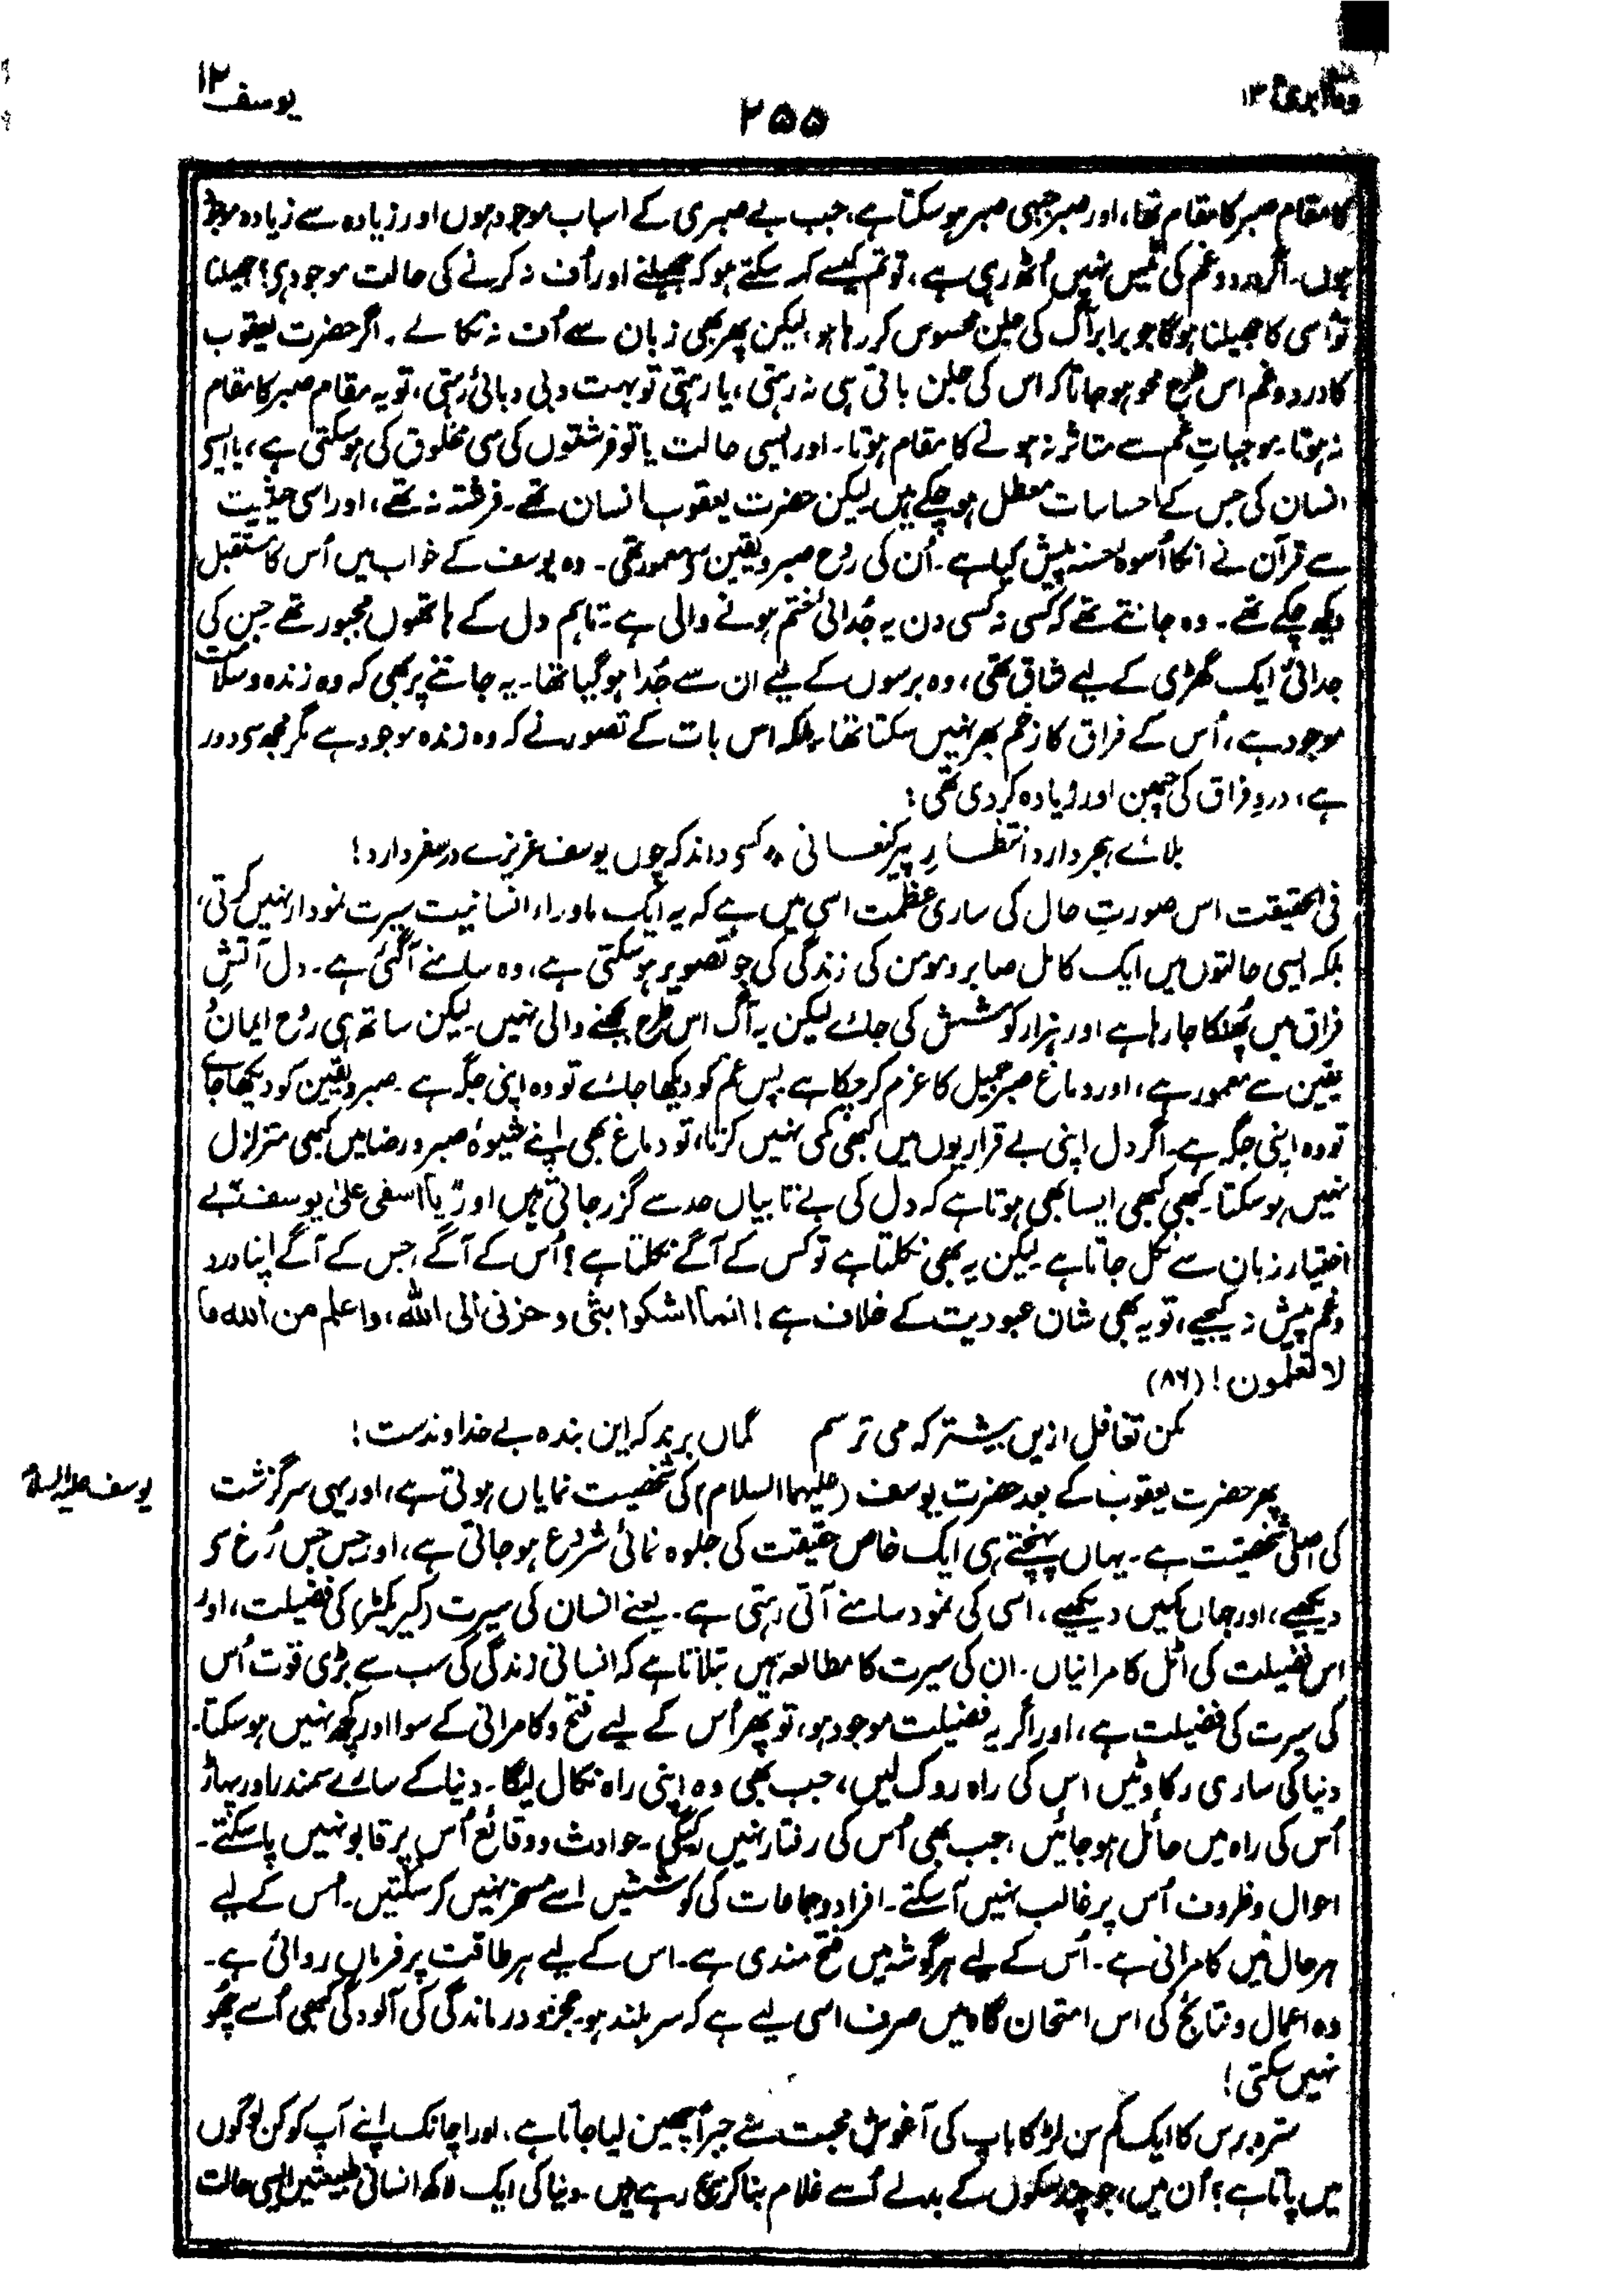 وما ابرئ ۱۳
۲۵۵
یوسف ۱۲
کا مقام صبر کا مقام تھا، اور صبر جبھی صبر ہو سکتا ہے، جب بے صبری کے اسباب موجود ہوں اور زیادہ سے زیادہ موجود
ہوں۔ اگر درد و غم کی ٹیس نہیں اُٹھ رہی ہے، تو تم کیسے کہہ سکتے ہو کہ جھیلنے اور اُف نہ کرنے کی حالت موجود ہی؟ جھیلنا
تو اُسی کا جھیلنا ہوگا جو برابر آگ کی جلن محسوس کر رہا ہو، لیکن پھر بھی زبان سے اُف نہ نکالے۔ اگر حضرت یعقوب
کا درد و غم اس طرح محو ہو جاتا کہ اس کی جلن باقی ہی نہ رہتی، یا رہتی تو بہت دبی دبائی رہتی، تو یہ مقام صبر کا مقام
نہ ہوتا۔ موجباتِ غم سے متاثر نہ ہونے کا مقام ہوتا۔ اور ایسی حالت یا تو فرشتوں کی سی مخلوق کی ہو سکتی ہے، یا ایسے
انسان کی جس کے احساسات معطل ہو چکے ہیں لیکن حضرت یعقوب انسان تھے۔ فرشتہ نہ تھے، اور اسی حیثیت
سے قرآن نے انکا اُسوۂ حسنہ پیش کیا ہے۔ اُن کی رُوح صبر و یقین سے معمور تھی۔ وہ یوسف کے خواب میں اُس کا مستقبل
دیکھ چکے تھے۔ وہ جانتے تھے کہ کسی نہ کسی دن یہ جُدائی ختم ہونے والی ہے۔ تاہم دل کے ہاتھوں مجبور تھے جس کی
جدائی ایک گھڑی کے لیے شاق تھی، وہ برسوں کے لیے ان سے جُدا ہو گیا تھا۔ یہ جاننے پر بھی کہ وہ زندہ و سلامت
موجود ہے، اُس کے فراق کا زخم بھر نہیں سکتا تھا، بلکہ اس بات کے تصور نے کہ وہ زندہ موجود ہے مگر مجھ سی دور
ہے، دردِ فراق کی چبھن اور زیادہ کر دی تھی:
بلائے ہجر دارد انتظارِ پیر کنعانی کسی داند کہ چوں یوسف عزیزے در سفر دارد!
فی الحقیقت اس صورتِ حال کی ساری عظمت اسی میں ہے کہ یہ ایک ماوراء انسانیت سیرت نمودار نہیں کرتی،
بلکہ ایسی حالتوں میں ایک کامل صابر و مومن کی زندگی کی جو تصویر ہو سکتی ہے، وہ سامنے آ گئی ہے۔ دل آتشِ
فراق میں پُھنکا جا رہا ہے اور ہزار کوشش کی جائے لیکن یہ آگ اس طرح بجھنے والی نہیں۔ لیکن ساتھ ہی رُوح ایمان و
یقین سے معمور ہے، اور دماغ صبر جمیل کا عزم کر چکا ہے پس غم کو دیکھا جائے تو وہ اپنی جگہ ہے۔ صبر و یقین کو دیکھا جائے
تو وہ اپنی جگہ ہے۔ اگر دل اپنی بے قراریوں میں کبھی کمی نہیں کرتا، تو دماغ بھی اپنے شیوۂ صبر و رضا میں کبھی متزلزل
نہیں ہو سکتا۔ کبھی کبھی ایسا بھی ہوتا ہے کہ دل کی بے تابیاں حد سے گزر جاتی ہیں اور ”یا اسفی علیٰ یوسف“ بے
اختیار زبان سے نکل جاتا ہے لیکن یہ بھی نکلتا ہے تو کس کے آگے نکلتا ہے؟ اُس کے آگے، جس کے آگے اپنا درد
و غم پیش نہ کیجیے، تو یہ بھی شان عبودیت کے خلاف ہے! انمآ اشکوا بثی و حزنی الی اللہ، و اعلم من اللہ ما
لا تعلمون! (۸۶)
مکن تغافل ازیں بیشتر کہ می ترسم گماں برند کہ این بندہ بے خداوندست!
پھر حضرت یعقوب کے بعد حضرت یوسف (علیہما السلام) کی شخصیت نمایاں ہوتی ہے، اور یہی سرگزشت
یوسف علیہ السلام
کی اصلی شخصیت ہے۔ یہاں پہنچتے ہی ایک خاص حقیقت کی جلوہ نمائی شروع ہو جاتی ہے، اور جس جس رُخ سے
دیکھیے، اور جہاں کہیں دیکھیے، اسی کی نمود سامنے آتی رہتی ہے۔ یعنے انسان کی سیرت (کیریکٹر) کی فضیلت، اور
اس فضیلت کی اٹل کامرانیاں۔ ان کی سیرت کا مطالعہ ہمیں بتلاتا ہے کہ انسانی زندگی کی سب سے بڑی قوت اُس
کی سیرت کی فضیلت ہے، اور اگر یہ فضیلت موجود ہو، تو پھر اُس کے لیے فتح و کامرانی کے سوا اور کچھ نہیں ہو سکتا۔
دنیا کی ساری رکاوٹیں اس کی راہ روک لیں، جب بھی وہ اپنی راہ نکال لیگا۔ دنیا کے سارے سمندر اور پہاڑ
اُس کی راہ میں حائل ہو جائیں، جب بھی اُس کی رفتار نہیں رکیگی۔ حوادث و وقائع اُس پر قابو نہیں پا سکتے۔
احوال و ظروف اُس پر غالب نہیں آ سکتے۔ افراد و جماعات کی کوششیں اسے مسخر نہیں کر سکتیں۔ اُس کے لیے
ہر حال میں کامرانی ہے۔ اُس کے لیے ہر گوشہ میں فتح مندی ہے۔ اس کے لیے ہر طاقت پر فرماں روائی ہے۔
وہ اعمال و نتائج کی اس امتحان گاہ میں صرف اسی لیے ہے کہ سر بلند ہو۔ عجز و درماندگی کی آلودگی کبھی اُسے چھو
نہیں سکتی!
سترہ برس کا ایک کم سن لڑکا باپ کی آغوش محبت سے جبراً چھین لیا جاتا ہے، اور اچانک اپنے آپ کو کن لوگوں
میں پاتا ہے؟ اُن میں، جو چند سکوں کے بدلے اُسے غلام بنا کر بیچ رہے ہیں۔ دنیا کی ایک لاکھ انسانی طبیعتیں ایسی حالت